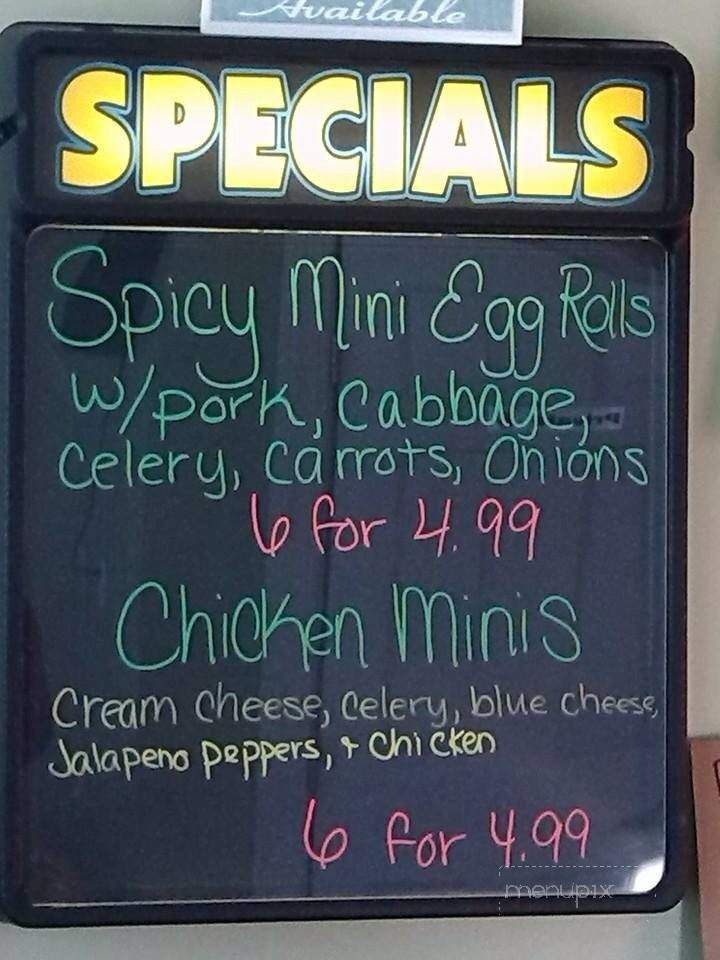 Available
SPECIALS
Spicy Mini Egg Rolls
w/pork, Cabbage,
Celery, Carrots, Onions
6 for 4.99
Chicken Minis
Cream Cheese, Celery, blue cheese,
Jalapeno peppers, + Chicken
6 for 4.99
menupix